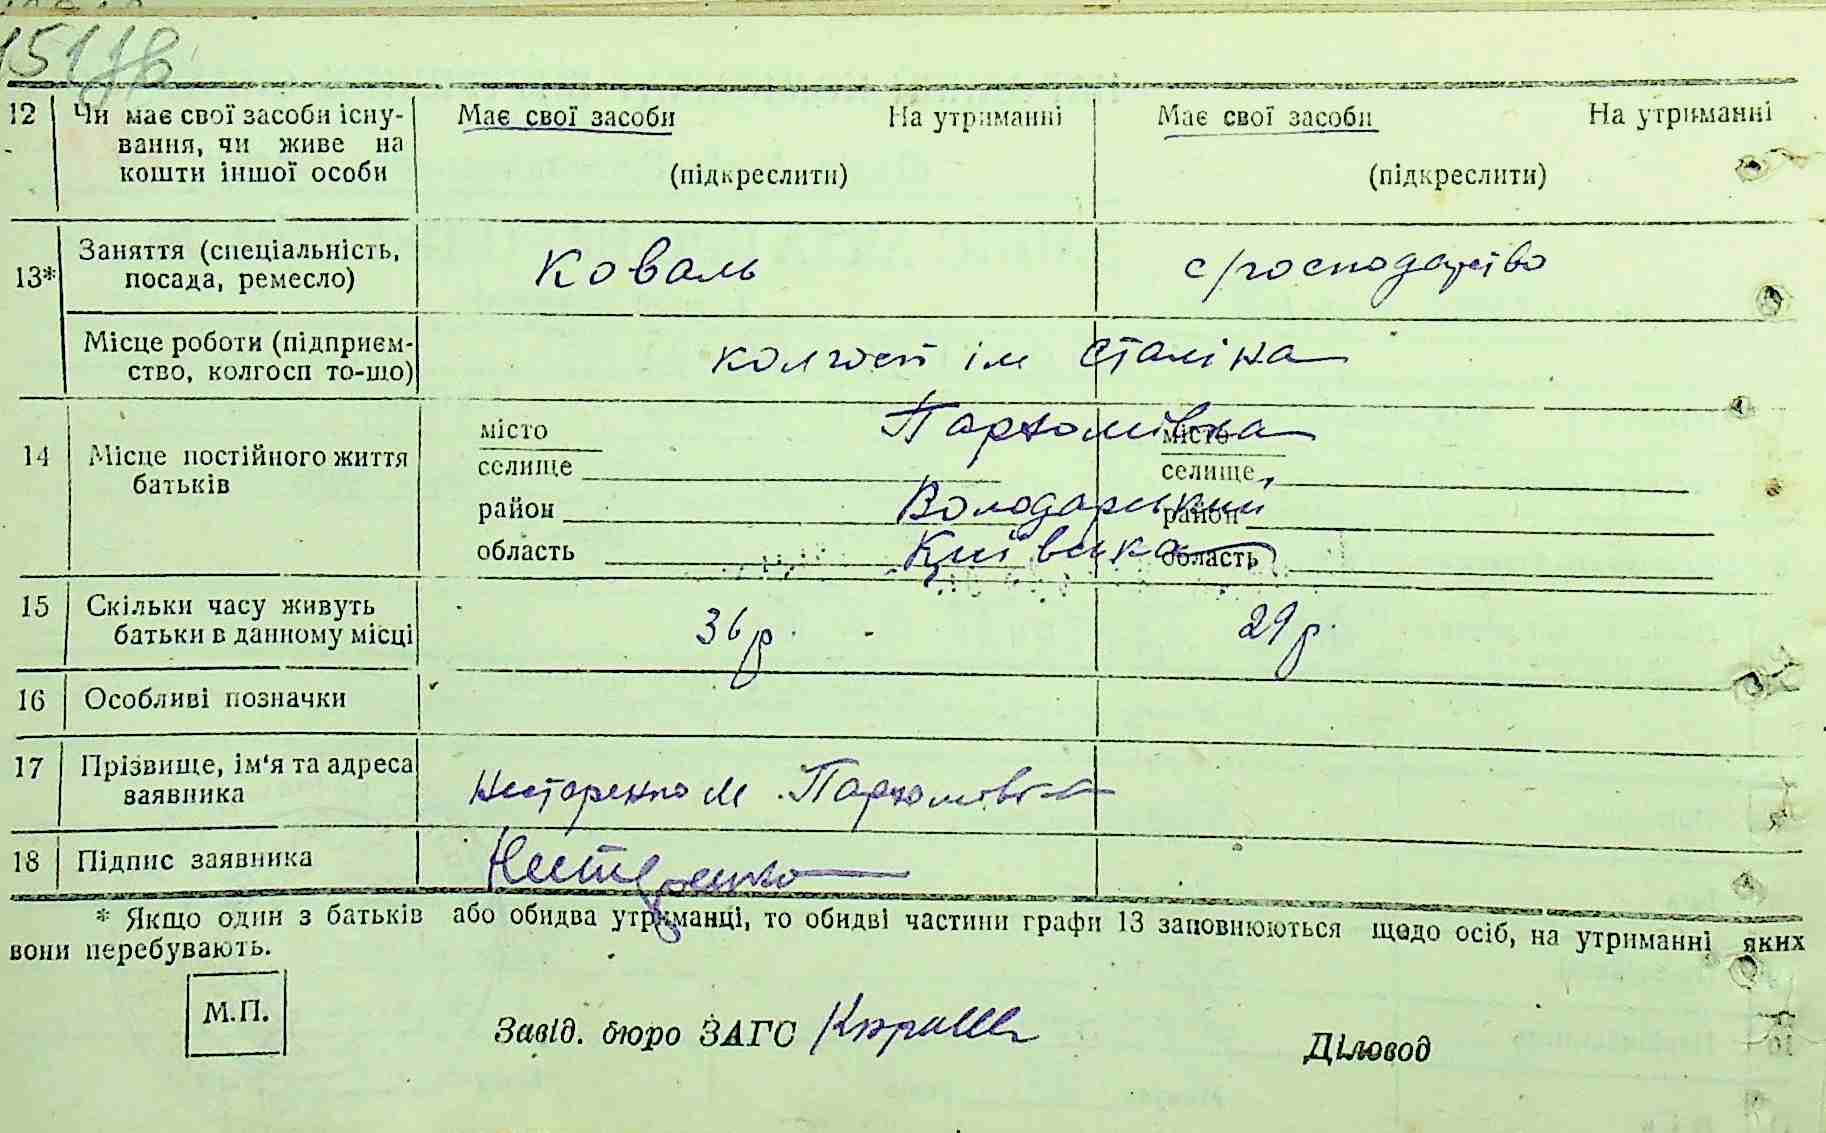 12 Чи має свої засоби існу-
вання, чи живе на
кошти іншої особи
Має свої засоби На утриманні
(підкреслити)
Має свої засоби На утриманні
(підкреслити)
13* Заняття (спеціальність,
посада, ремесло)
Коваль
с/господарство
Місце роботи (підприєм-
ство, колгосп то-що)
колгосп ім Сталіна
14 Місце постійного життя
батьків
місто
селище
район
область
Пархомівка
Володарський
Київська
місто
селище
район
область
15 Скільки часу живуть
батьки в данному місці
36 р.
29 р.
16 Особливі позначки
17 Прізвище, ім'я та адреса
заявника
Нестеренко М Пархомівка
18 Підпис заявника
Нестеренко
* Якщо один з батьків або обидва утриманці, то обидві частини графи 13 заповнюються щодо осіб, на утриманні яких
вони перебувають.
М.П.
Завід. бюро ЗАГС
Діловод